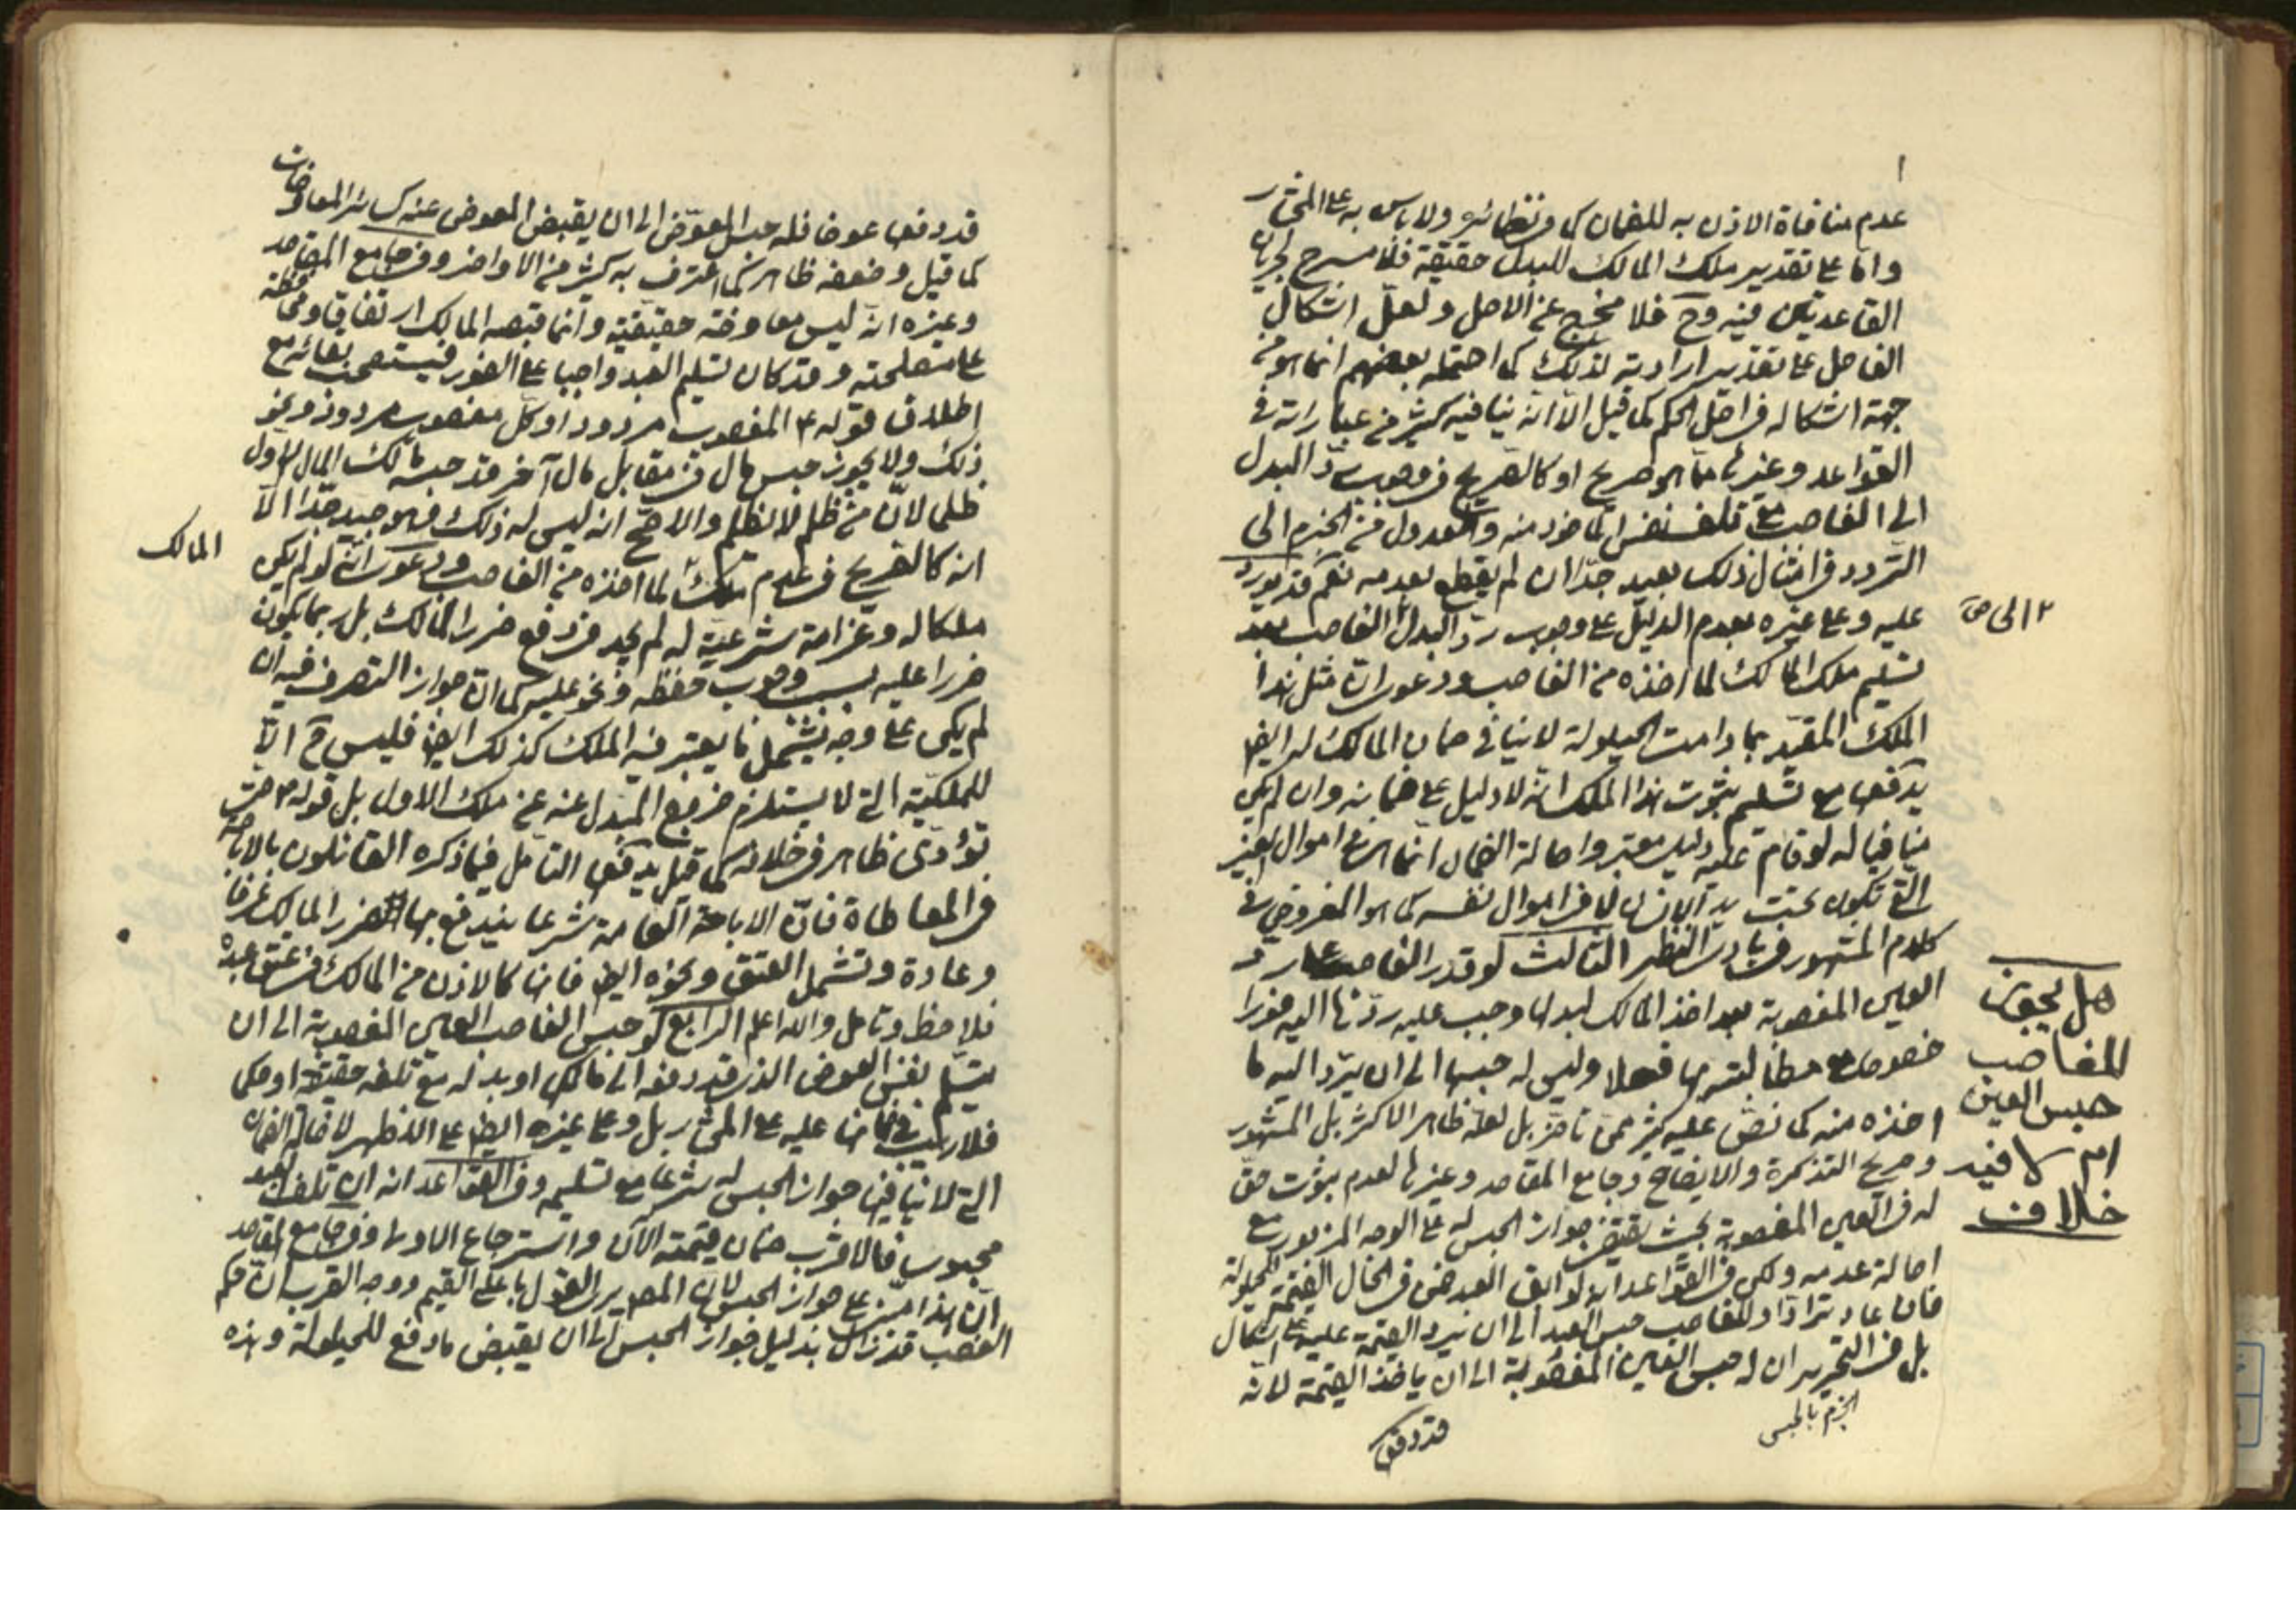 عدم منافاة الاذن به للضمان كما فى نظائره ولا باس به على المختار
واما على تقدير ملك المالك للبدل حقيقة فلا مسرح لجريان
القاعدتين فيه وح فلا مخرج عن الاصل ولعل اشكال
الفاضل على تقدير ارادته لذلك كما احتمله بعضهم انما هو من
جهة اشكاله فى اصل الحكم كما قيل الا انه ينافيه كثير من عباراته فى
القواعد وغيرها مما هو صريح او كالصريح فى وجوب ردّ البدل
الى الغاصب مع تلف نفس الماخوذ منه والعدول من الجزم الى
التردد فى امثال ذلك بعيد جدّا ان لم يقطع بعدمه نعم قد يورد
عليه وعلى غيره بعدم الدليل على وجوب ردّ البدل الغاصب بعد
٢ الى ص
تسليم ملك المالك لما اخذه من الغاصب ودعوى ان مثل هذا
الملك المقيد بما دامت الحيلولة لا ينافى ضمان المالك له ايضا
يدفعها مع تسليم ثبوت هذا الملك انه لا دليل على ضمانه وان لم يكن
منافيا له لو قام عليه دليل معتبر واصالة الضمان انما هى فى اموال الغير
التى تكون تحت يد الانسان لا فى اموال نفسه كما هو المفروض فى
كلام المشهور فى بادى النظر الثالث لو قدر الغاصب على ردّ
العين المغصوبة بعد اخذ المالك لبدلها وجب عليه ردّها اليه فورا
خصوصا مع مطالبته بها فعلا وليس له حبسها الى ان يردّ اليه ما
اخذه منه كما نصّ عليه كثير ممن تاخر بل لعله ظاهر الاكثر بل المشهور
وصريح التذكرة والايضاح وجامع المقاصد وغيرها لعدم ثبوت حقّ
له فى العين المغصوبة بحيث يقتضى جواز الحبس له على الوجه المزبور مع
اصالة عدمه ولكن فى القواعد انه لو ابق العبد ضمن فى الحال القيمة للحيلولة
فان عاد ترادّا وللغاصب حبس العبد الى ان يرد القيمة عليه على اشكال
بل فى التحرير ان له حبس العين المغصوبة الى ان ياخذ القيمة لانه
الجزم بالحبس
قد دفعها
هل يجوز
للغاصب
حبس العين
ام لا فيه
خلاف
قد دفعها عوضا فله حبس المعوّض الى ان يقبض المعوض عنه كسائر المعاوضات
كما قيل وضعفه ظاهر كما اعترف به كثير من الاواخر وفى جامع المقاصد
وغيره انه ليس معاوضة حقيقية وانما قبضه المالك ارتفاقا ومحافظة
على مصلحته وقد كان تسليم العبد واجبا على الفور فيستصحب بقائه مع
اطلاق قوله ع المغصوب مردود او كلّ مغصوب مردود ونحو
ذلك ولا يجوز حبس مال فى مقابل مال آخر قد حبسه مالك المال الاول
ظلما لانّ من ظلم لا يظلم والاصحّ انه ليس له ذلك وهو جيد جدّا الا
انه كالصريح فى عدم تملك لما اخذه من الغاصب ودعوى انه لو لم يكن
المالك
ملكا له وغرامة شرعية له لم يجد فى دفع ضرر المالك بل ربما يكون
ضررا عليه بسبب وجوب حفظه ونحو عليه كما ان جواز التصرف فيه ان
لم يكن على وجه يشمل ما يعتبر فيه الملك كذلك ايضا فليس ح الا
للملكية التى لا يستلزم خروج المبدل عنه عن ملك الاول بل قوله ع حتى
تؤدّى ظاهر فى خلافه كما قيل يدفعها التامل فيما ذكره القائلون بالاباحة
فى المعاطاة فانّ الاباحة العامة شرعا يندفع بها ضرر المالك عرفا
وعادة وتشمل العتق ونحوه ايضا فانها كالاذن من المالك فى عتق عبده
فلاحظ وتامل والله اعلم الرابع لو حبس الغاصب العين المغصوبة الى ان
يتسلم نفس العوض الذى قد دفعه الى مالكها او بدله مع تلفه حقيقة او حكما
فلا ريب فى ضمانها عليه على المختار بل وعلى غيره ايضا على الاظهر لاصالة الضمان
التى لا ينافيها جواز الحبس له شرعا مع تسليمه وفى القواعد انه ان تلف العبد
محبوسا فالاقرب ضمان قيمته الآن واسترجاع الاولى وفى جامع المقاصد
ان هذا مبنى على جواز الحبس لان المصر يرى القول باعلى القيم ووجه القرب ان حكم
الغصب قد زال بدليل جواز الحبس الى ان يقبض ما دفع للحيلولة وهذه